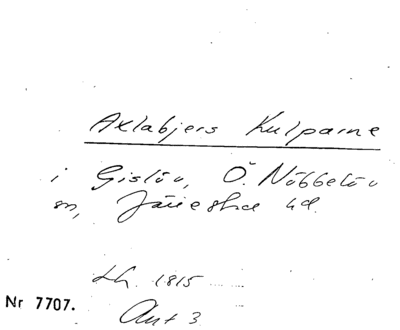 Axlabjers Kulparne
i Gislöv, Ö. Nöbbelöv
sn, Järrestad hd.
Lh. 1815
Nr 7707.
Ant 3